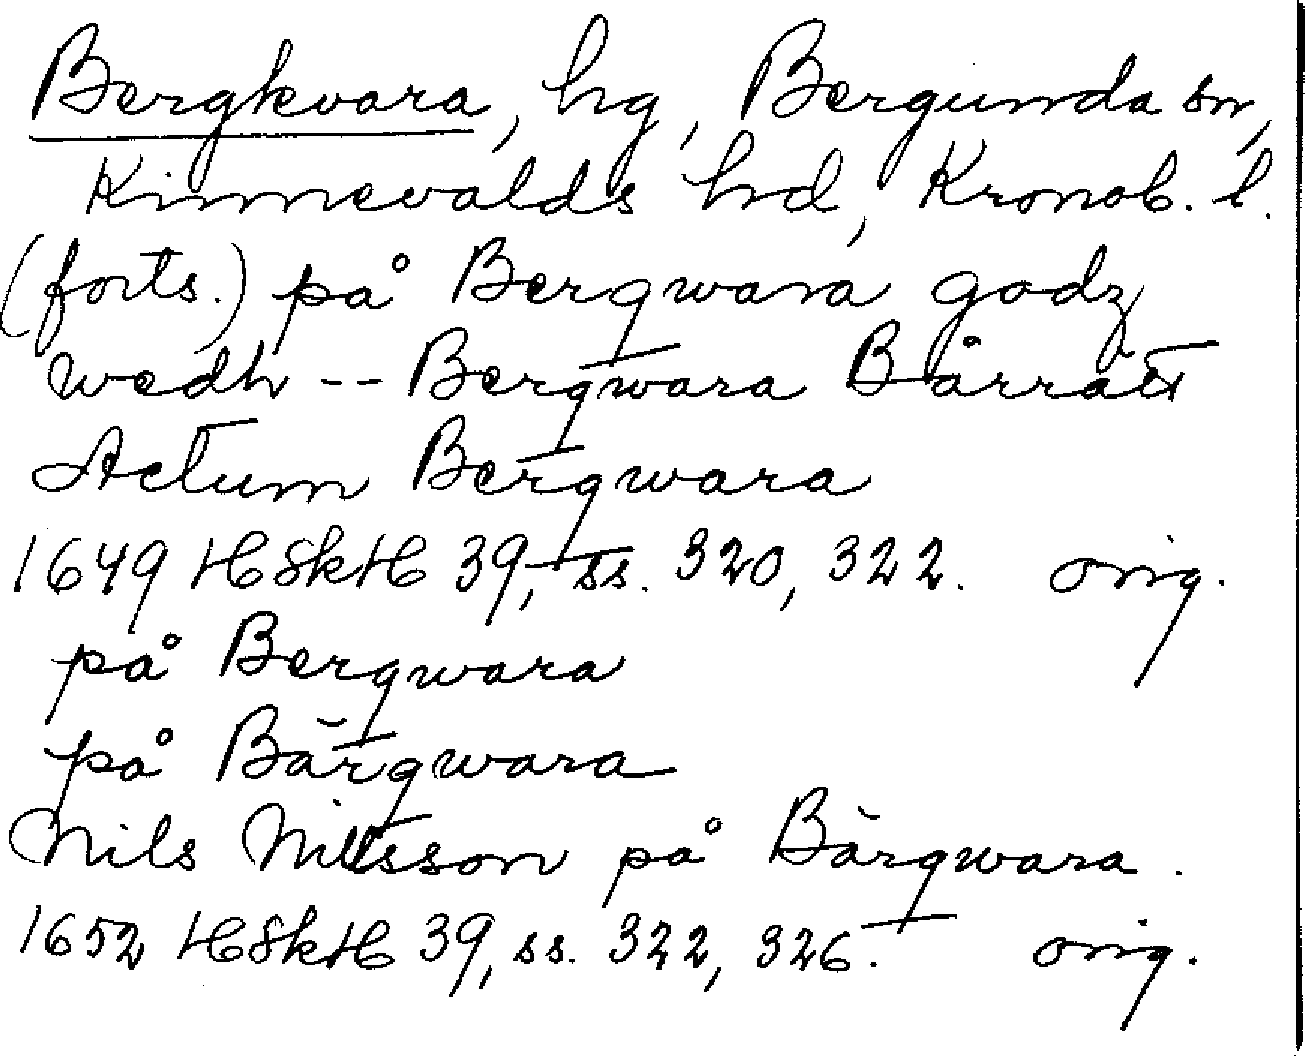 Bergkvara, hg, Bergunda sn,
Kinnevalds hd, Kronob. l.
(forts.) på Bergqwara godz
wedh -- Bergqwara Bårrätt
Actum Bergqwara
1649 HSkH 39, ss. 320, 322. orig.
på Bergqwara
på Bärgqwara
Nils Nilsson på Bärgqwara.
1652 HSkH 39, ss. 322, 326. orig.